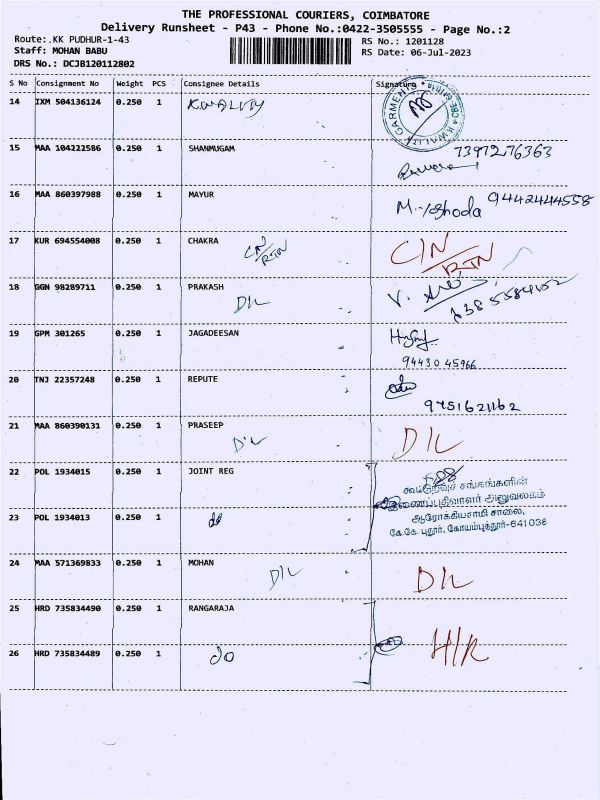 THE PROFESSIONAL COURIERS, COIMBATORE
Delivery Runsheet - P43 - Phone No.:0422-3505555 - Page No.:2
Route:.KK PUDHUR-1-43 RS No.: 1201128
Staff: MOHAN BABU RS Date: 06-Jul-2023
DRS No.: DCJB120112802
S No Consignment No Weight PCS Consignee Details Signature
14 IXM 504136124 0.250 1 KWALITY
GARMENT KWALITY
15 MAA 104222586 0.250 1 SHANMUGAM 7397276363
16 MAA 860397988 0.250 1 MAYUR M. Yashoda 9442444558
17 KUR 694554008 0.250 1 CHAKRA C/N RTN C/N RTN
18 GGN 98289711 0.250 1 PRAKASH D/L V.
19 GPM 301265 0.250 1 JAGADEESAN
94430 45966
20 TNJ 22357248 0.250 1 REPUTE
9751621162
21 MAA 860390131 0.250 1 PRASEEP D/L D/L
22 POL 1934015 0.250 1 JOINT REG
கூட்டுறவுச் சங்கங்களின்
இணைப்பதிவாளர் அலுவலகம்
ஆரோக்கியசாமி சாலை,
கே.கே. புதூர், கோயம்புத்தூர்-641038
23 POL 1934013 0.250 1 do
24 MAA 571369833 0.250 1 MOHAN D/L D/L
25 HRD 735834490 0.250 1 RANGARAJA
26 HRD 735834489 0.250 1 do H/R